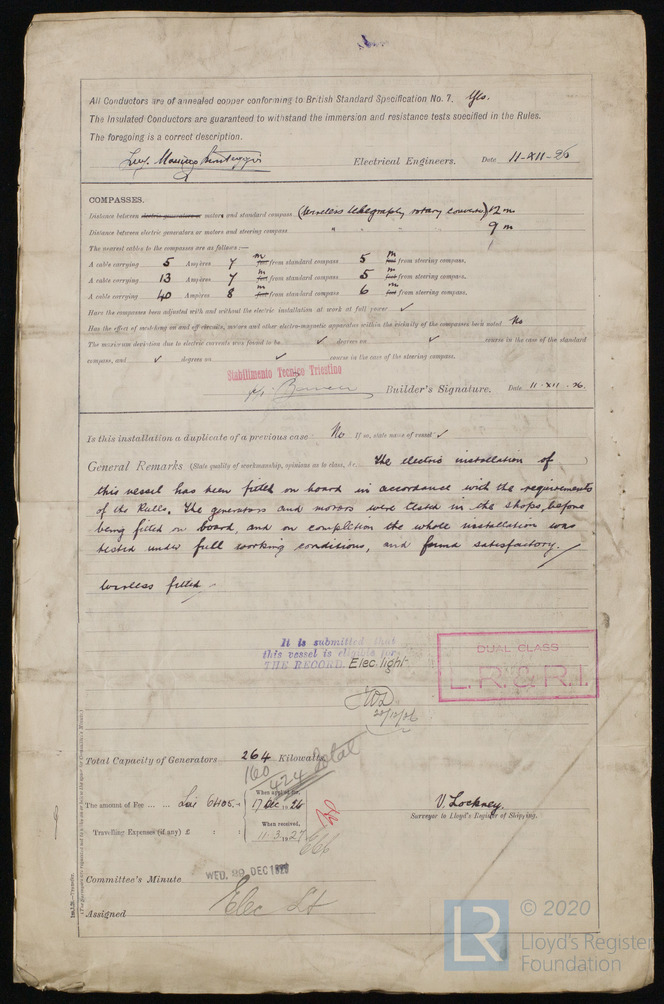 All Conductors are of annealed copper conforming to British Standard Specification No. 7. Yes.
The Insulated Conductors are guaranteed to withstand the immersion and resistance tests specified in the Rules.
The foregoing is a correct description.
Electrical Engineers. Date 11-XII-26
COMPASSES.
Distance between electric generators or motors and standard compass (Wireless telegraphy rotary converter) 12 m
Distance between electric generators or motors and steering compass " " " 9 m
The nearest cables to the compasses are as follows:—
A cable carrying 5 Ampères 7 m feet from standard compass 5 m feet from steering compass.
A cable carrying 13 Ampères 7 m feet from standard compass 5 m feet from steering compass.
A cable carrying 40 Ampères 8 m feet from standard compass 6 m feet from steering compass.
Have the compasses been adjusted with and without the electric installation at work at full power ✓
Has the effect of switching on and off circuits, motors and other electro-magnetic apparatus within the vicinity of the compasses been noted No
The maximum deviation due to electric currents was found to be ✓ degrees on ✓ course in the case of the standard
compass, and ✓ degrees on ✓ course in the case of the steering compass.
Stabilimento Tecnico Triestino
Builder's Signature. Date 11-XII-26.
Is this installation a duplicate of a previous case No If so, state name of vessel ✓
General Remarks (State quality of workmanship, opinions as to class, &c. The electric installation of )
this vessel has been fitted on board in accordance with the requirements
of the Rules. The generators and motors were tested in the shops, before
being fitted on board, and on completion the whole installation was
tested under full working conditions, and found satisfactory.
Wireless fitted.
It is submitted that
this vessel is eligible for
THE RECORD. Elec. light.
DUAL CLASS
L.R. & R.I.
20/12/26
Total Capacity of Generators 264 Kilowatts
160
424 Total
The amount of Fee ... ... Lei 6405.
When applied for,
17 Dec 1926
Travelling Expenses (if any) £ : :
When received,
11.3.1927
V. Lockney.
Surveyor to Lloyd's Register of Shipping.
Committee's Minute WED. 29 DEC 1926
Assigned Elec Lt
© 2020
LR
Lloyd's Register
Foundation